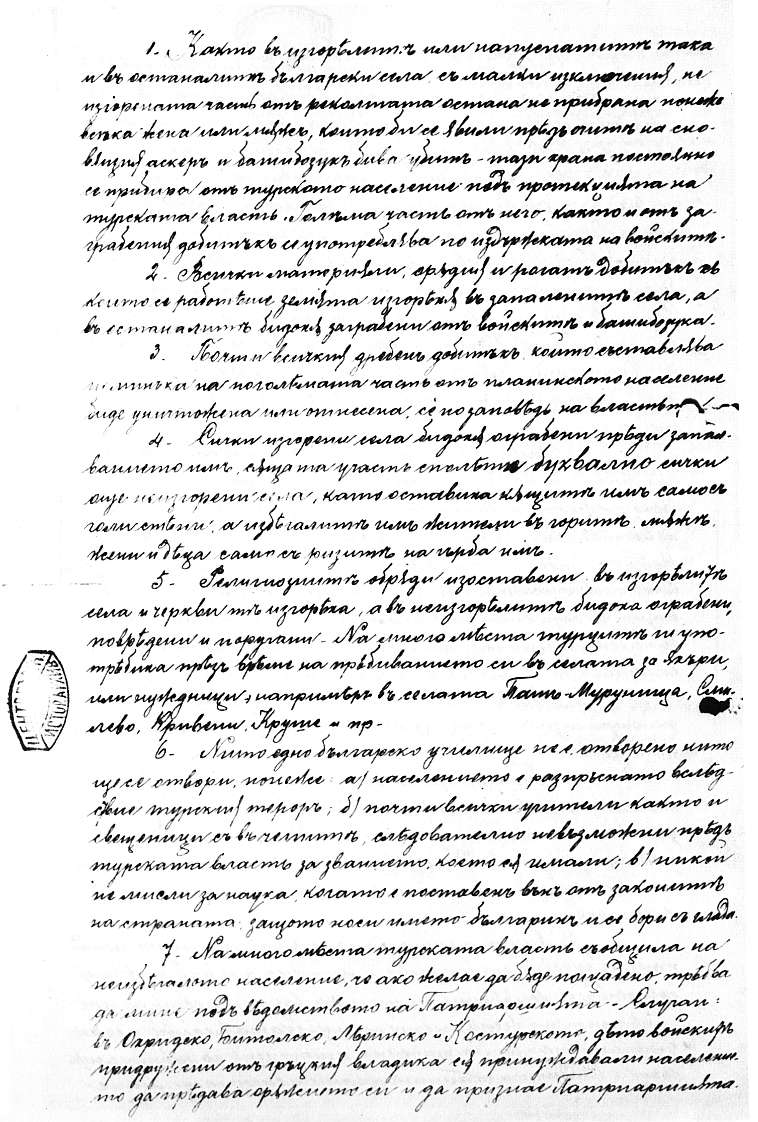 1. Както въ изгорѣлитѣ или напуснатитѣ така
и въ останалитѣ български села, съ малки изключения, не
изгорената часть отъ реколтата остана не прибрана понеже
всѣка жена или мѫжъ, които би се явили прѣдъ очитѣ на сно-
вящия аскеръ и башибозукъ бива убитъ – тази храна постоянно
се прибира отъ турското население подъ протекцията на
турската власть. Голѣма часть отъ него, както и отъ за-
грабения добитъкъ се употреблява по издържката на войскитѣ.
2. Всички материяли, орѫдия и рогатъ добитъкъ съ
които се работѣше земята изгорѣхѫ въ запаленитѣ села, а
въ останалитѣ бидохѫ заграбени отъ войскитѣ и башибозука.
3. Почти всичкия дребенъ добитъкъ, който съставлява
поминъка на поголѣмата часть отъ планинското население
биде унищожена или отнесена, се по заповѣдь на властьта
4. Сички изгорени села бидохѫ ограбени прѣди запал-
ванието имъ, сѫщата участь сполѣте буквално сички
още неизгорени села, като оставиха кѫщитѣ имъ само съ
голи стѣни, а избѣгалитѣ имъ жители въ горитѣ, мѫже,
жени и дѣца само съ ризитѣ на гърба имъ.
5. Религиознитѣ обряди изоставени въ изгорѣлитѣ
села и черквитѣ изгорѣха, а въ неизгорѣлитѣ бидоха ограбени,
поврѣдени и поругани – На много мѣста турцитѣ ги упо-
трѣбиха прѣзъ врѣме на прѣбиванието си въ селата за яхъри,
или нуждници, напримѣръ въ селата Пать-Муруница, Сми-
лево, Кривени, Круше и пр.
6. Нито едно българско училище не е отворено нито
ще се отвори, понеже: а) населението е разпръснато вслѣд-
ствие турский тероръ; б) почти всички учители както и
свещеници съ въ четитѣ, слѣдователно невъзможни прѣдъ
турската власть за званието, което сѫ имали; в) никой
не мисли за наука, когато е поставенъ вънъ отъ законитѣ
на страната, защото носи името българинъ и се бори съ глада.
7. На много мѣста турската власть съобщила на
неизбѣгалото население, че ако желае да бѫде пощадено, трѣбва
да мине подъ вѣдомството на Патриаршията – Случаи:
въ Охридско, Битолско, Лѣринско и Костурското, дѣто войскитѣ
придружени отъ гръцкия владика сѫ принуждавали население-
то да прѣдава орѫжието си и да признае Патриаршията.